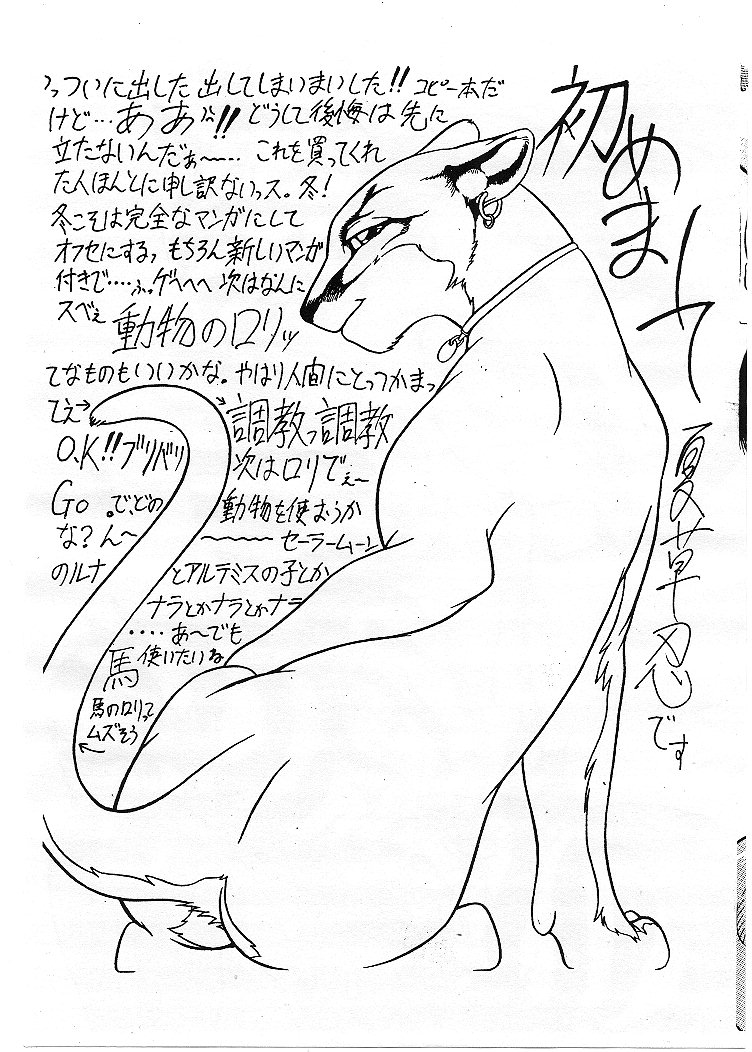 初めまして
夏草忍です
っついに出した出してしまいまいした!! コピー本だ
けど…ああ"!! どうして後悔は先に
立たないんだぁ〜… これを買ってくれ
た人ほんとに申し訳ないっス。冬!
冬こそは完全なマンガにして
オフセにするっもちろん新しいマンガ
付きで……ふっゲへへへ 次はなんに
スべぇ 動物のロリッ
てなものもいいかな。やはり人間にとっつかまっ
てえ→ 調教っ調教
O.K!!ブリバリ 次はロリでぇ〜
Go。でどの動物を使おうか
な?ん〜〜〜〜〜 セーラームーン
のルナとアルテミスの子とか
ナラとかナラとかナラ
‥‥あ〜でも
馬使いたいね
馬のロリって
ムズそう